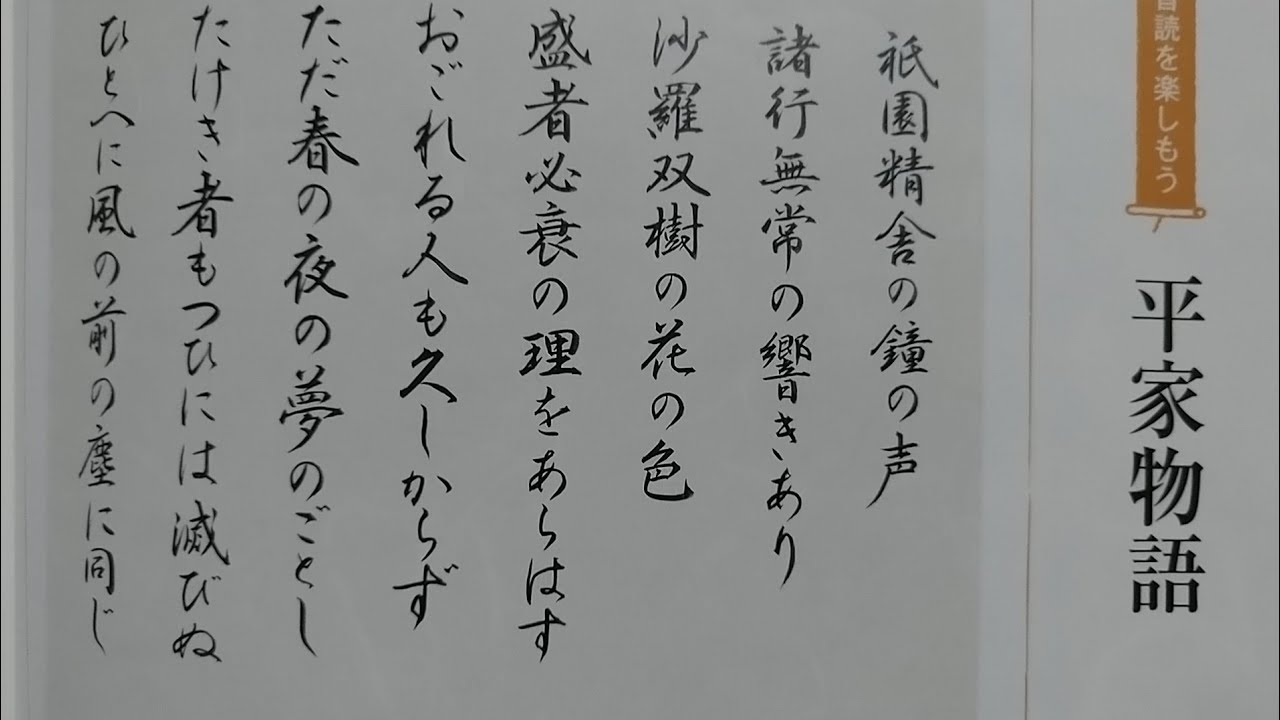 音読を楽しもう
平家物語
祇園精舎の鐘の声
諸行無常の響きあり
沙羅双樹の花の色
盛者必衰の理をあらはす
おごれる人も久しからず
ただ春の夜の夢のごとし
たけき者もつひには滅びぬ
ひとへに風の前の塵に同じ